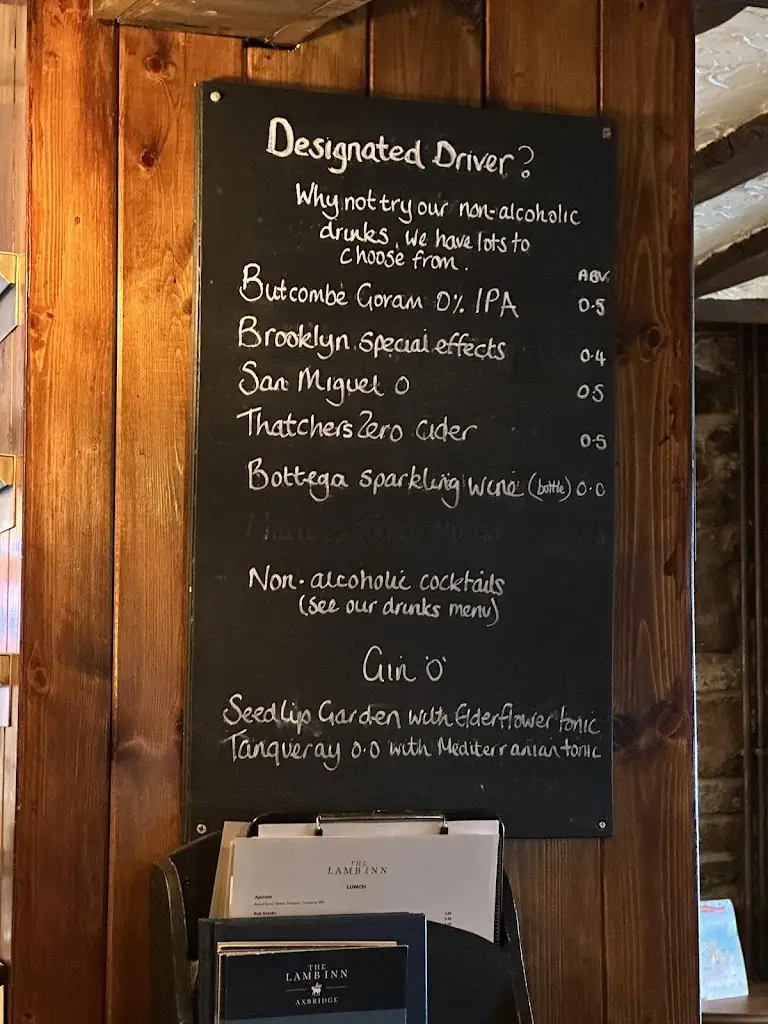 Designated Driver?
Why not try our non-alcoholic
drinks, we have lots to
choose from.
ABV.
Butcombe Goram 0% IPA 0.5
Brooklyn special effects 0.4
San Miguel 0 05
Thatchers Zero cider 0.5
Bottega sparkling wine (bottle) 0.0
Non-alcoholic cocktails
(see our drinks menu)
Gin '0'
Seedlip Garden with Elderflower tonic
Tanqueray 0.0 with Mediterranian tonic
THE
LAMB INN
LUNCH
THE
LAMB INN
AXBRIDGE